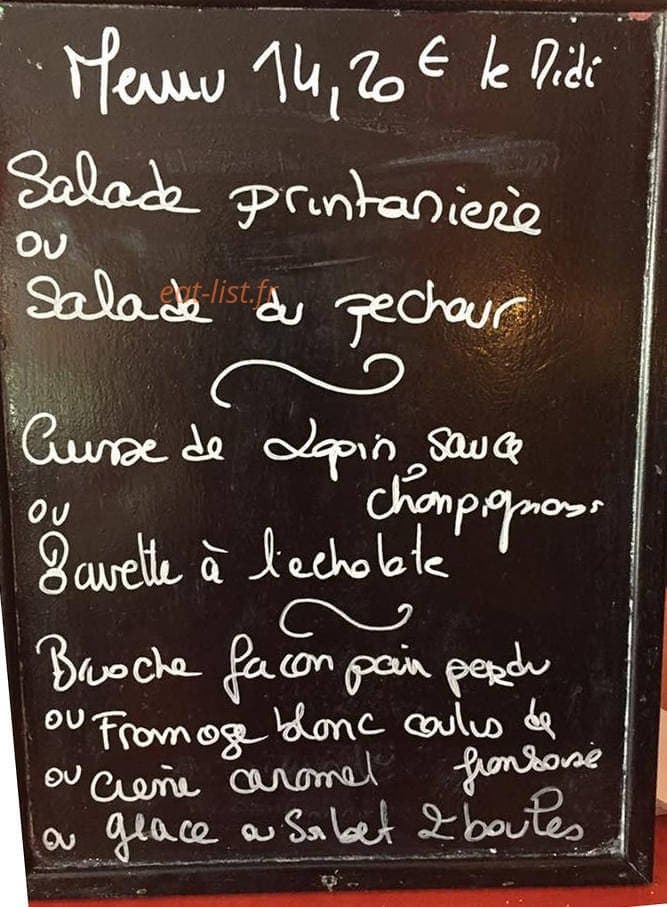 Menu 14,20€ le Midi
Salade printanière
ou
Salade du pecheur
eat-list.fr
Cuisse de Lapin sauce
champignons
ou
Bavette à l'echalote
Brioche façon pain perdu
ou Fromage blanc coulis de
framboise
ou Crème caramel
ou glace ou Sorbet 2 boules